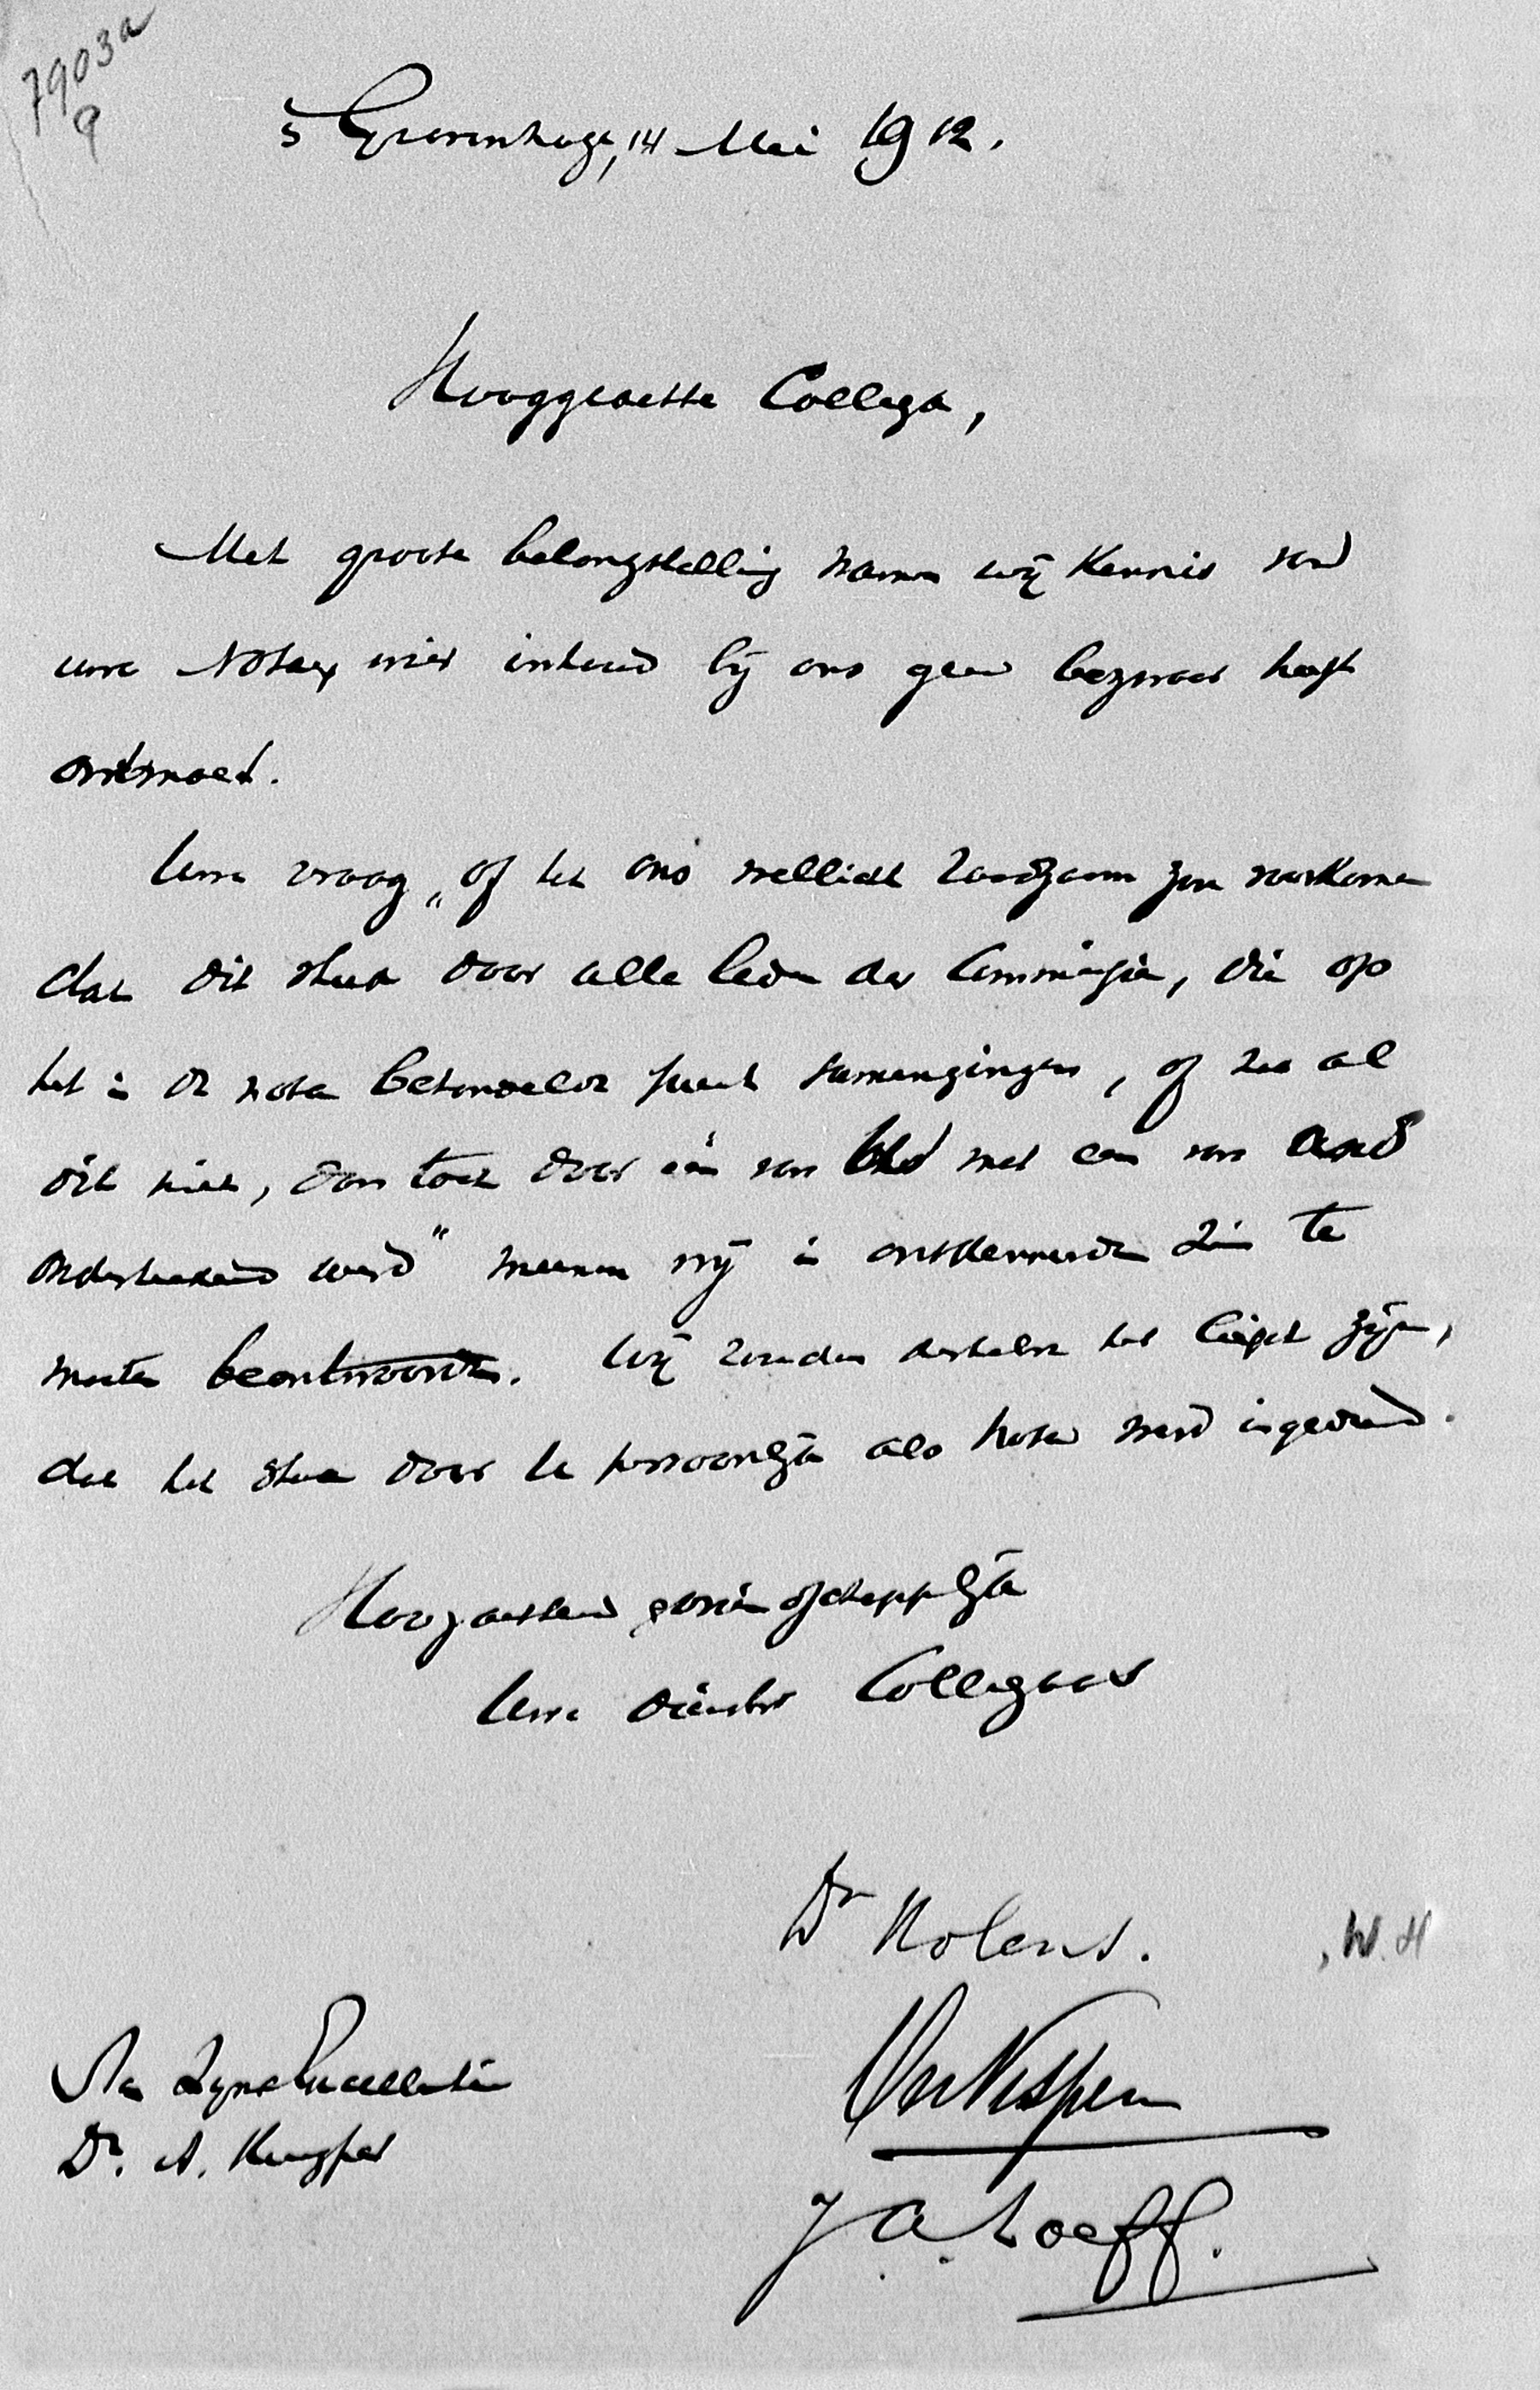 7903a
9
's Gravenhage, 14 Mei 1912.
Hooggeachte Collega,
Met groote belangstelling namen wij kennis van
uwe Nota, wier inhoud bij ons geen bezwaar heeft
ontmoet.
Uwe vraag „of het ons wellicht raadzaam zou voorkomen
dat dit stuk door alle leden der Commissie, die op
het in de nota behandelde punt samengingen, of zoo al
dit niet, dan toch door één van U met een van ons
onderteekend werd" meenen wij in ontkennende zin te
moeten beantwoorden. Wij zouden derhalve het liefst zien,
dat het stuk door U persoonlijk als Nota werd ingediend.
Hoogachtend en vriendschappelijk
Uwe dienstw Collega's
Dr Nolens. , W. H
OvNispen
J A. Loeff.
An Zijne Excellentie
Dr. A. Kuyper